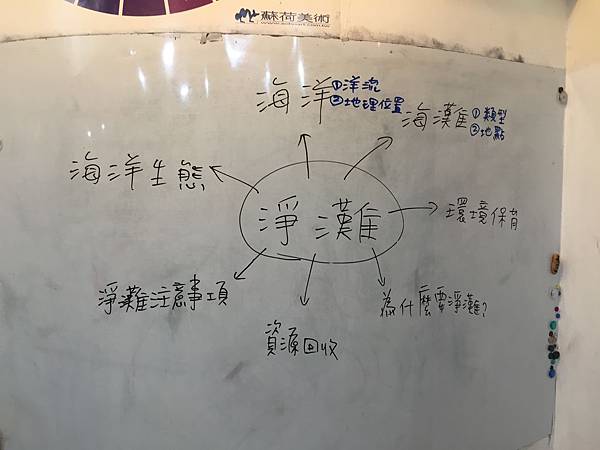 蘇荷美術
海洋 ①洋流
②地理位置
海灘 ①類型
②地點
海洋生態
淨灘
環境保育
淨灘注意事項
為什麼要淨灘?
資源回收